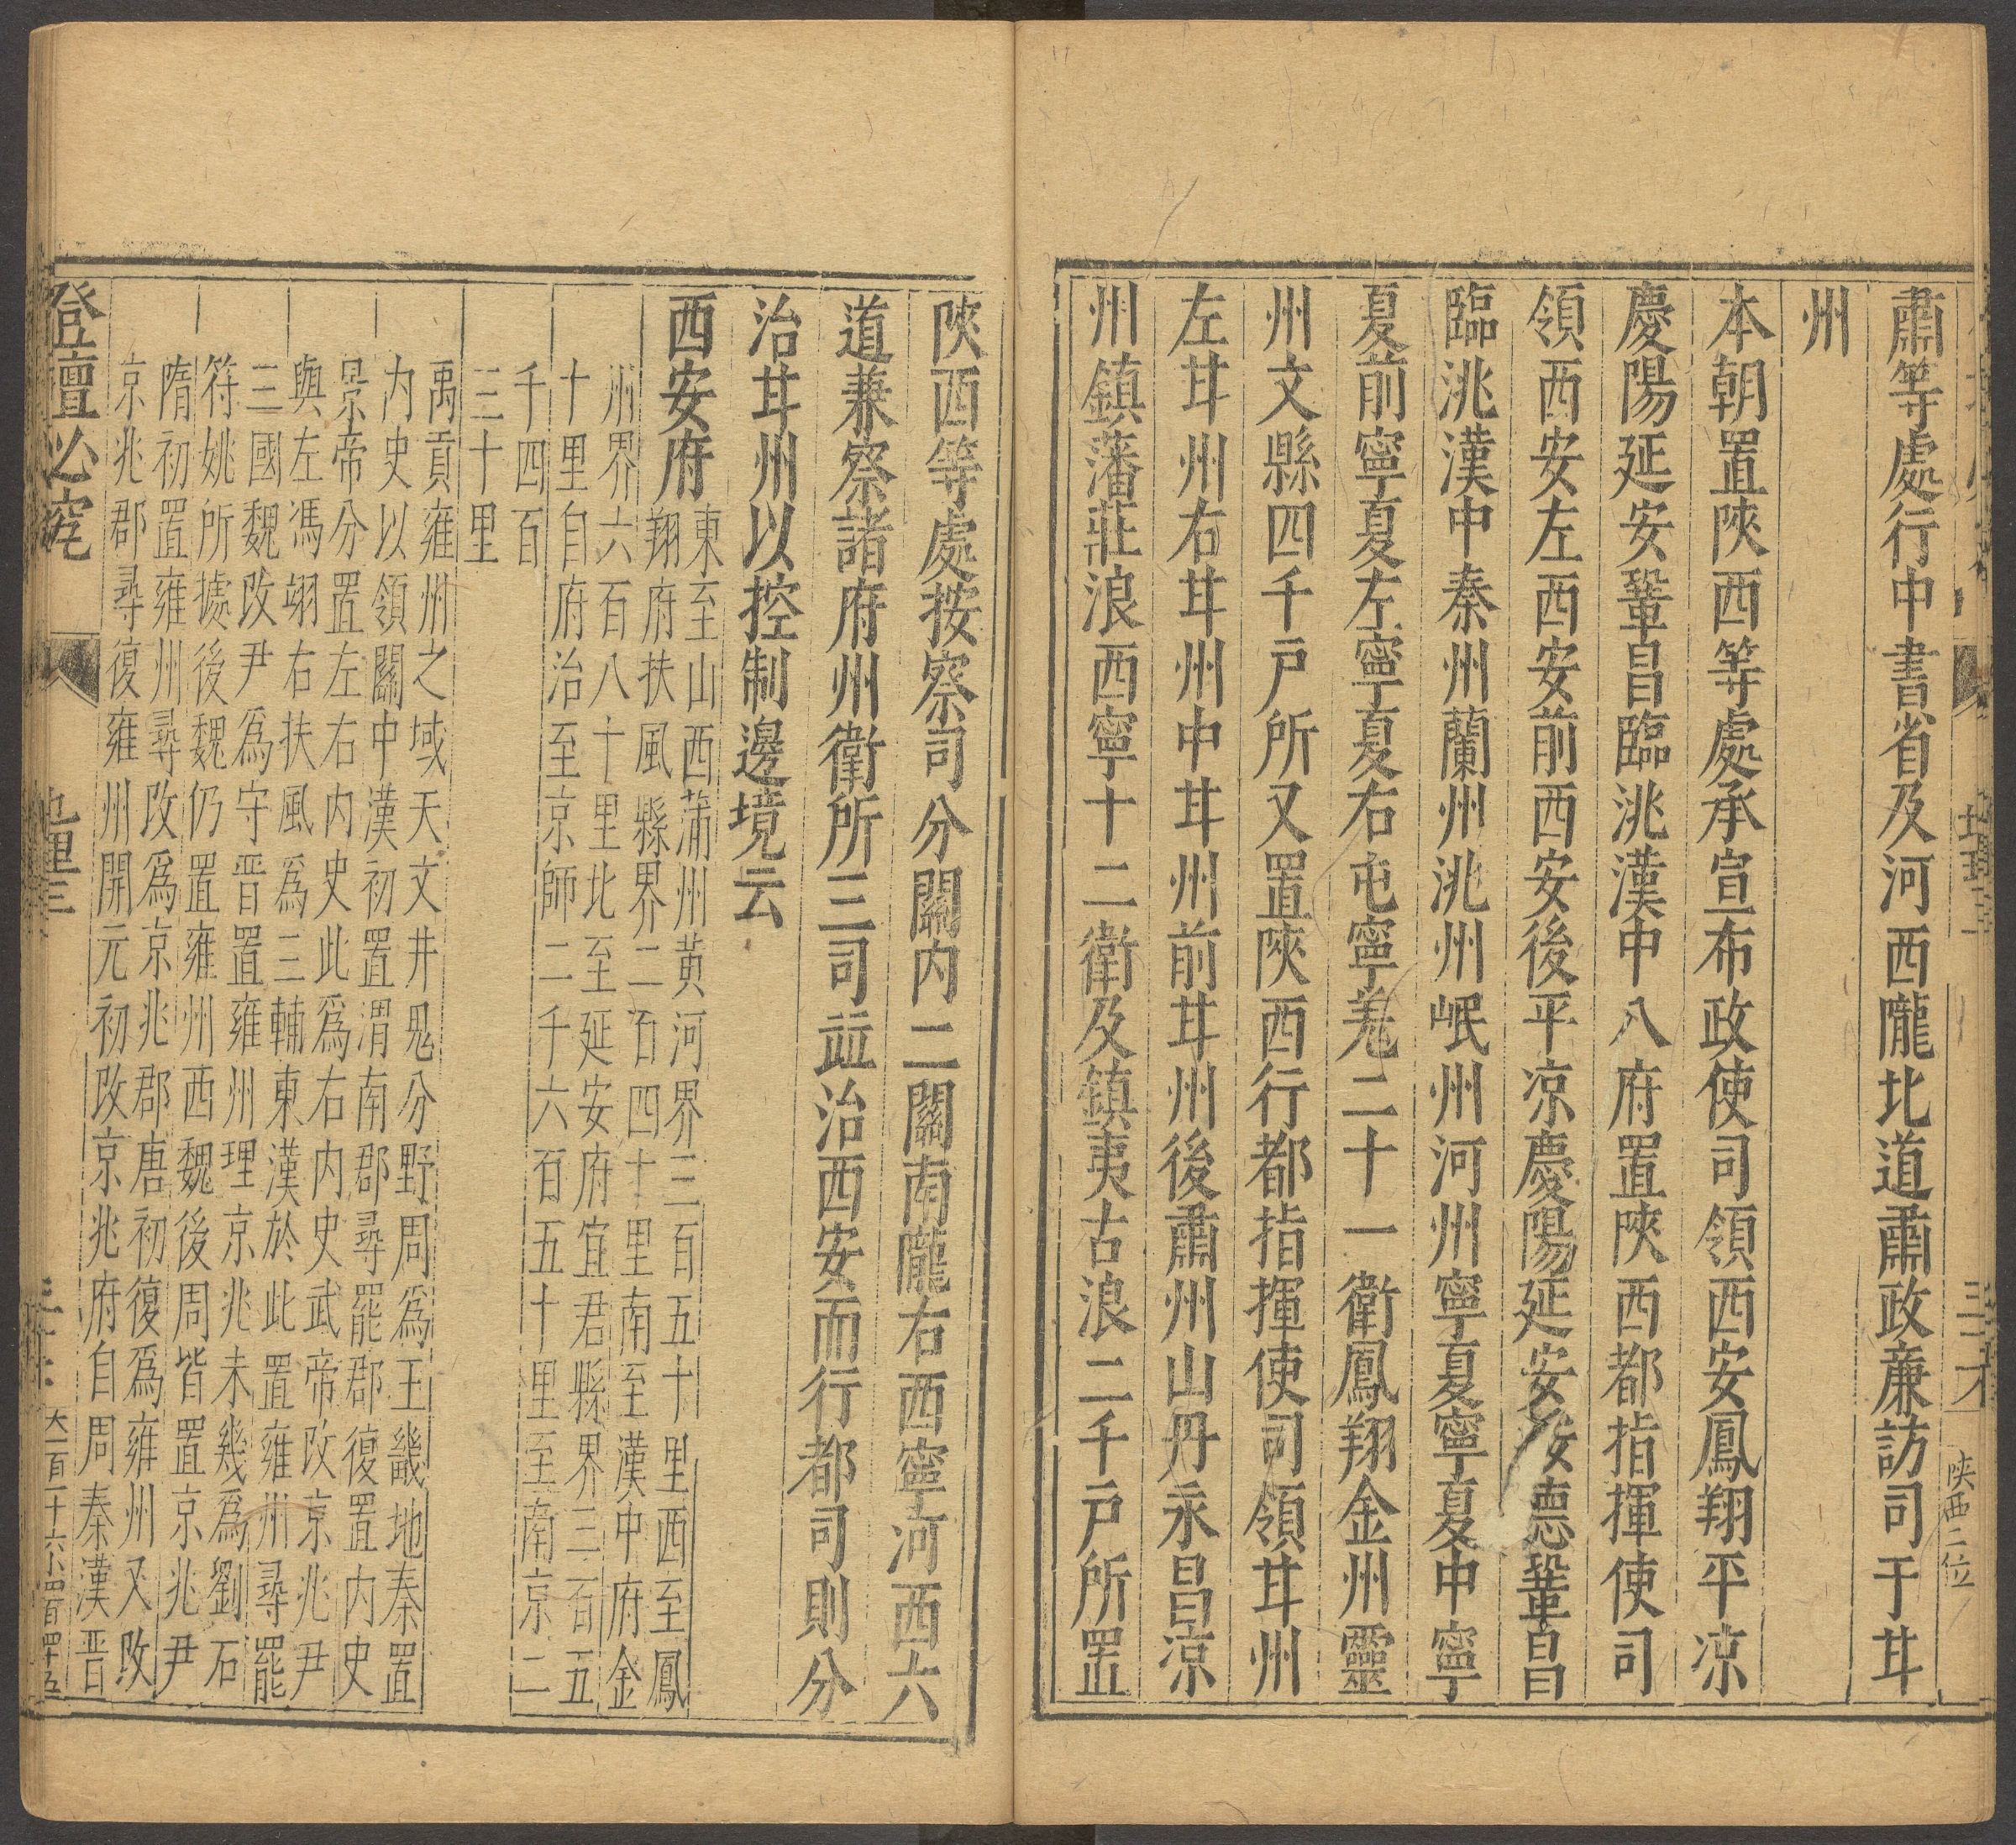 肅等處行中書省及河西隴北道肅政廉訪司于甘
州
本朝置陜西等處承宣布政使司領西安鳳翔平凉
慶陽延安鞏昌臨洮漢中八府置陜西都指揮使司
領西安左西安前西安後平凉慶陽延安綏德鞏昌
臨洮漢中秦州蘭州洮州岷州河州寧夏寧夏中寧
夏前寧夏左寧夏右屯寧羗二十一衛鳳翔金州靈
州文縣四千戸所又置陜西行都指揮使司領甘州
左甘州右甘州中甘州前甘州後肅州山丹永昌凉
州鎮藩莊浪西寧十二衛及鎮夷古浪二千戸所置
陜西二位
陜西等處按察司分關内二關南隴右西寧河西六
道兼察諸府州衛所三司並治西安而行都司則分
治甘州以控制邊境云
西安府
東至山西蒲州黄河界三百五十里西至鳳
翔府扶風縣界二百四十里南至漢中府金
州界六百八十里北至延安府宜君縣界三百五
十里自府治至京師二千六百五十里至南京二
千四百
三十里
禹貢雍州之域天文井鬼分野周為王畿地秦置
内史以領關中漢初置渭南郡尋罷郡復置内史
景帝分置左右内史此為右内史武帝改京兆尹
與左馮翊右扶風為三輔東漢於此置雍州尋罷
三國魏改尹為守晉置雍州理京兆未幾為劉石
符姚所據後魏仍置雍州西魏後周皆置京兆尹
隋初置雍州尋改為京兆郡唐初復為雍州又改
京兆郡尋復雍州開元初改京兆府自周秦漢晋
登壇必究
大二百二十六小四百四十五